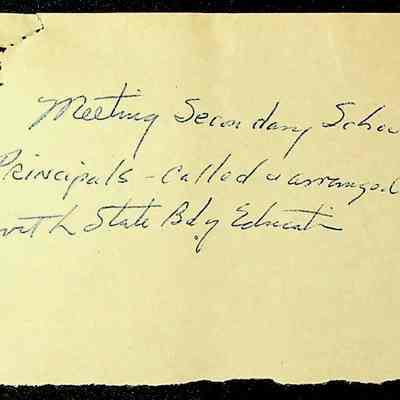 Meeting Secondary Schoo
Principals - called & arranged
with State Bd of Education